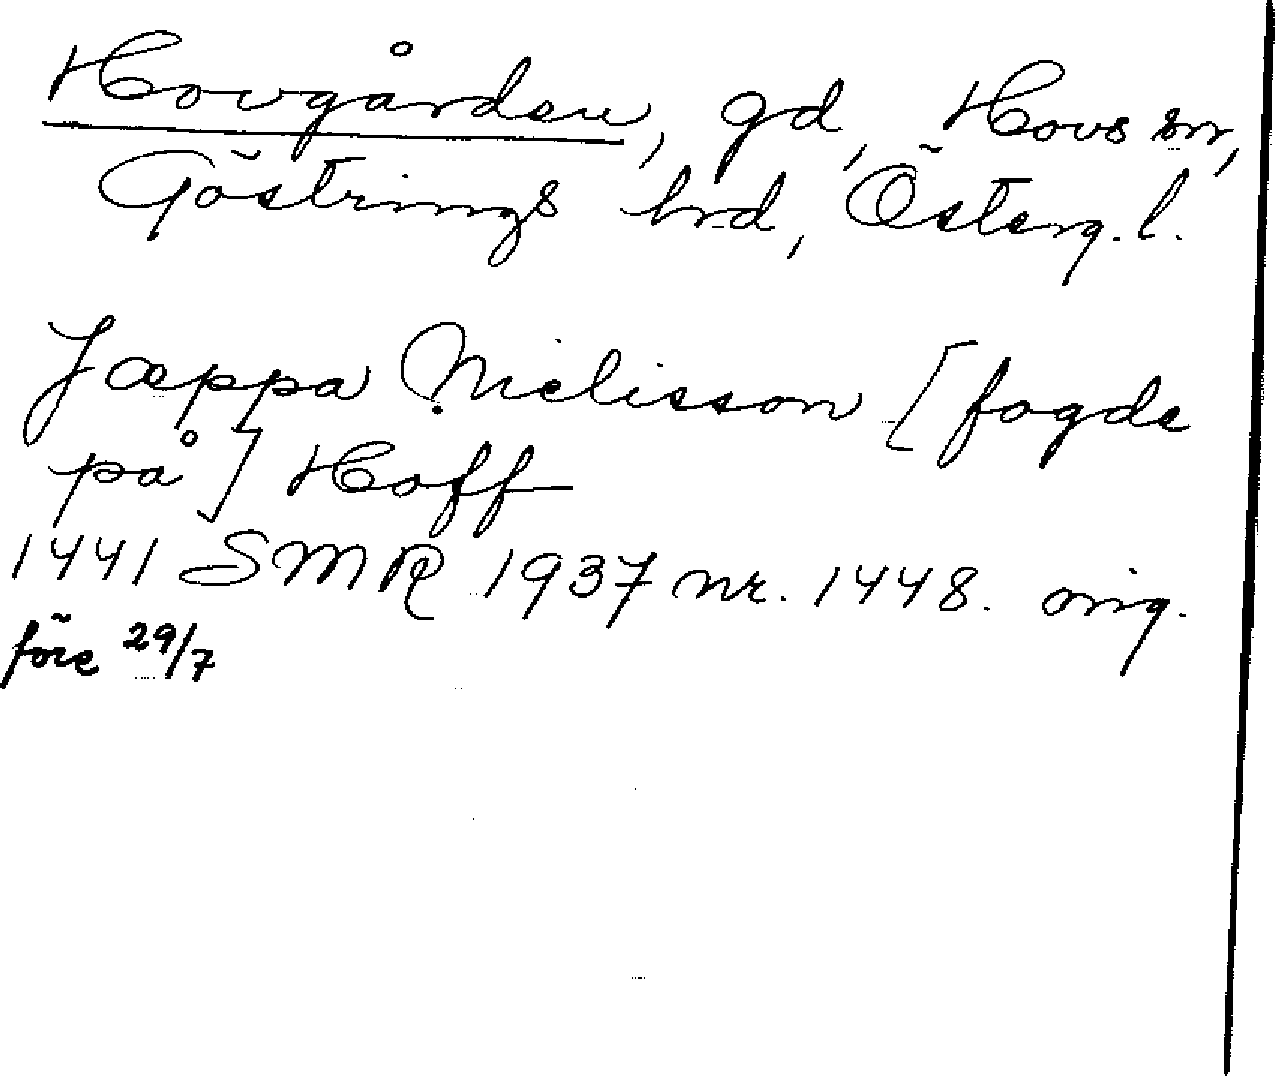 Hovgården, gd, Hovs sn,
Göstrings hrd, Österg. l.
Jæppa Nielisson [fogde
på] Hoff
1441 SMR 1937 nr. 1448. orig.
före 29/7